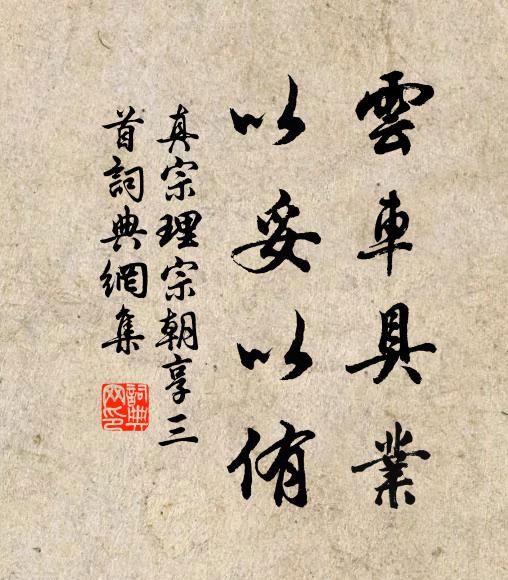 雲車具業
以妥以侑
真宗理宗朝享三
首詞典網集
詞典
网印